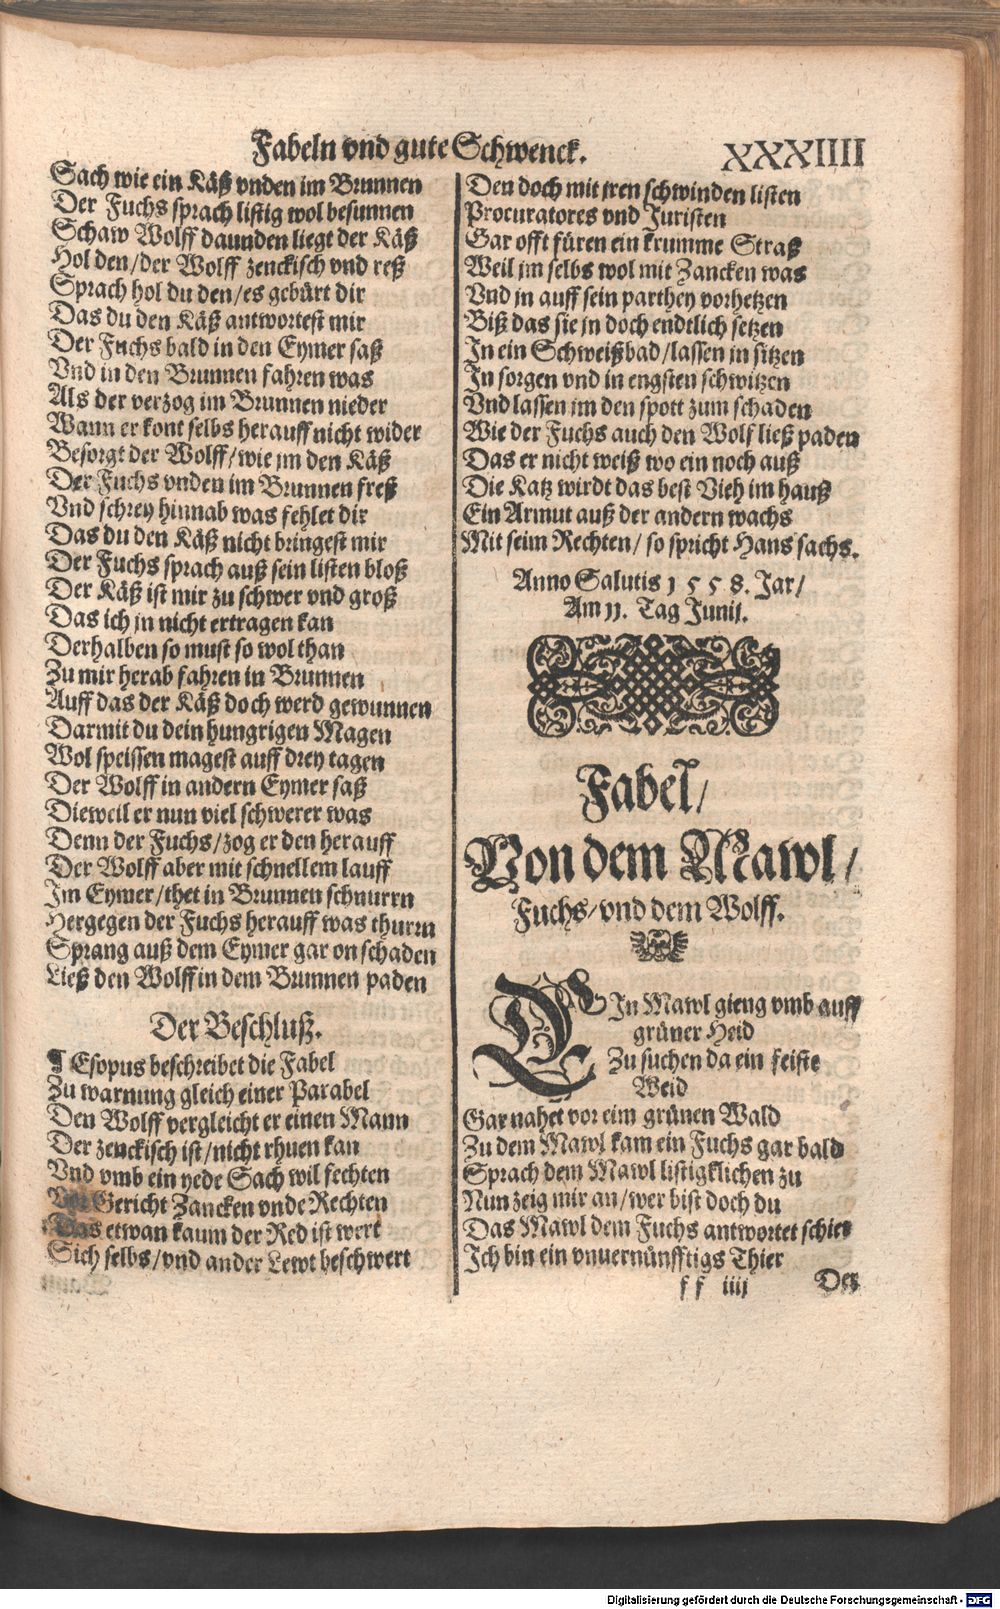 Fabeln vnd gute Schwenck. XXXIIII
Sach wie ein Käß vnden im Brunnen
Der Fuchs sprach listig wol besunnen
Schaw Wolff daunden liegt der Käß
Hol den/der Wolff zenckisch vnd reß
Sprach hol du den/es gebürt dir
Das du den Käß antwortest mir
Der Fuchs bald in den Eymer saß
Vnd in den Brunnen fahren was
Als der verzog im Brunnen nieder
Wann er kont selbs herauff nicht wider
Besorgt der Wolff/wie jm den Käß
Der Fuchs vnden im Brunnen freß
Vnd schrey hinnab was fehlet dir
Das du den Käß nicht bringest mir
Der Fuchs sprach auß sein listen bloß
Der Käß ist mir zu schwer vnd groß
Das ich jn nicht ertragen kan
Derhalben so must so wol than
Zu mir herab fahren in Brunnen
Auff das der Käß doch werd gewunnen
Darmit du dein hungrigen Magen
Wol speissen magest auff drey tagen
Der Wolff in andern Eymer saß
Dieweil er nun viel schwerer was
Denn der Fuchs/zog er den herauff
Der Wolff aber mit schnellem lauff
Im Eymer/thet in Brunnen schnurrn
Hergegen der Fuchs herauff was thurm
Sprang auß dem Eymer gar on schaden
Ließ den Wolff in dem Brunnen paden
Der Beschluß.
¶ Esopus beschreibet die Fabel
Zu warnung gleich einer Parabel
Den Wolff vergleicht er einen Mann
Der zenckisch ist/nicht rhuen kan
Vnd vmb ein yede Sach wil fechten
Vor Gericht Zancken vnde Rechten
Das etwan kaum der Red ist wert
Sich selbs/vnd ander Lewt beschwert
Den doch mit jren schwinden listen
Procuratores vnd Juristen
Gar offt füren ein krumme Straß
Weil jm selbs wol mit Zancken was
Vnd jn auff sein parthey vorhetzen
Biß das sie jn doch endtlich setzen
In ein Schweißbad/lassen jn sitzen
In sorgen vnd in engsten schwitzen
Vnd lassen jm den spott zum schaden
Wie der Fuchs auch den Wolf ließ paden
Das er nicht weiß wo ein noch auß
Die Katz wirdt das best Vieh im hauß
Ein Armut auß der andern wachs
Mit seim Rechten/ so spricht Hans sachs.
Anno Salutis 1558. Jar/
Am 11. Tag Junij.
Fabel/
Von dem Mawl/
Fuchs/vnd dem Wolff.
EIn Mawl gieng vmb auff
grüner Heid
Zu suchen da ein feiste
Weid
Gar nahet vor eim grünen Wald
Zu dem Mawl kam ein Fuchs gar bald
Sprach dem Mawl listigklichen zu
Nun zeig mir an/wer bist doch du
Das Mawl dem Fuchs antwortet schier
Ich bin ein vnuernünfftigs Thier
ff iiij Der
Digitalisierung gefördert durch die Deutsche Forschungsgemeinschaft - DFG